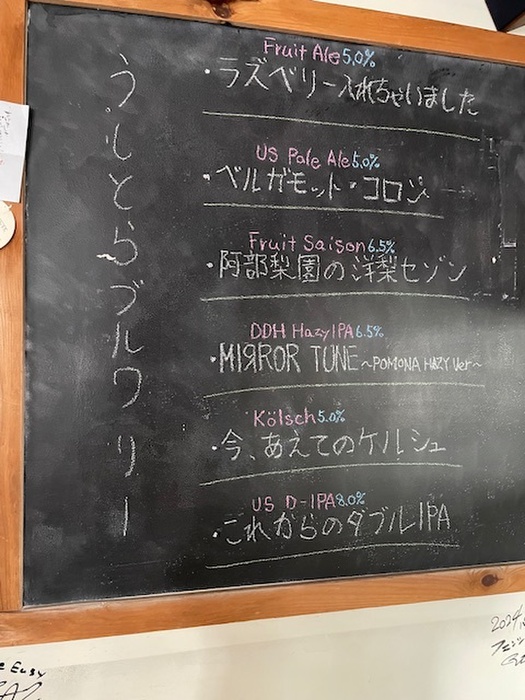 うしとらブルワリー
Fruit Ale 5.0%
・ラズベリー入れちゃいました
US Pale Ale 5.0%
・ベルガモット・コロン
Fruit Saison 6.5%
・阿部梨園の洋梨セゾン
DDH HazyIPA 6.5%
・MIЯROR TUNE ~POMONA HAZY Ver~
Kölsch 5.0%
・今、あえてのケルシュ
US D-IPA 8.0%
・これからのダブルIPA